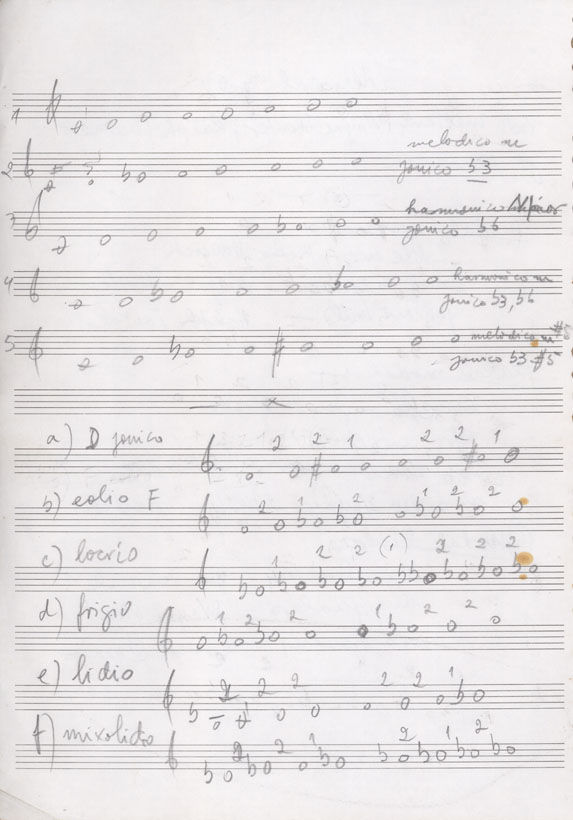 1
2 melodico m
jonico b3
3 harmonico Major
jonico b6
4 harmonico m
jonico b3, b6
5 melódico m #5
jonico b3 #5
a) D jonico 2 2 1 2 2 1
b) eolio F 2 1 2 1 2 2
c) locrio 1 2 2 (1) 2 2 2
d) frigio 1 2 2 1 2 2
e) lidio 2 2 2 2 2 1
f) mixolidio 2 2 1 2 1 2